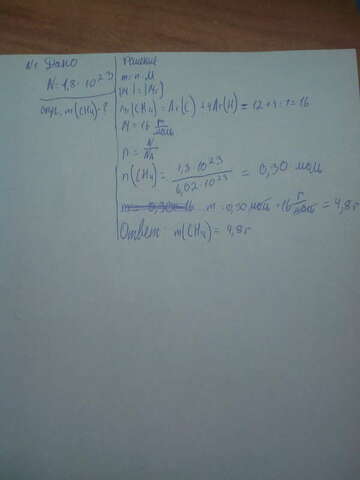 N1 Дано
N = 1,8 · 10²³
опр. m(CH4) - ?
Решение
m = n · M
|M| = |Mr|
Mr(CH4) = Ar(C) + 4Ar(H) = 12 + 4 · 1 = 16
M = 16 г/моль
n = N/NA
n(CH4) = 1,8 · 10²³ / 6,02 · 10²³ = 0,30 моль
m = 0,30 · 16 m = 0,30 моль · 16 г/моль = 4,8 г
Ответ: m(CH4) = 4,8 г